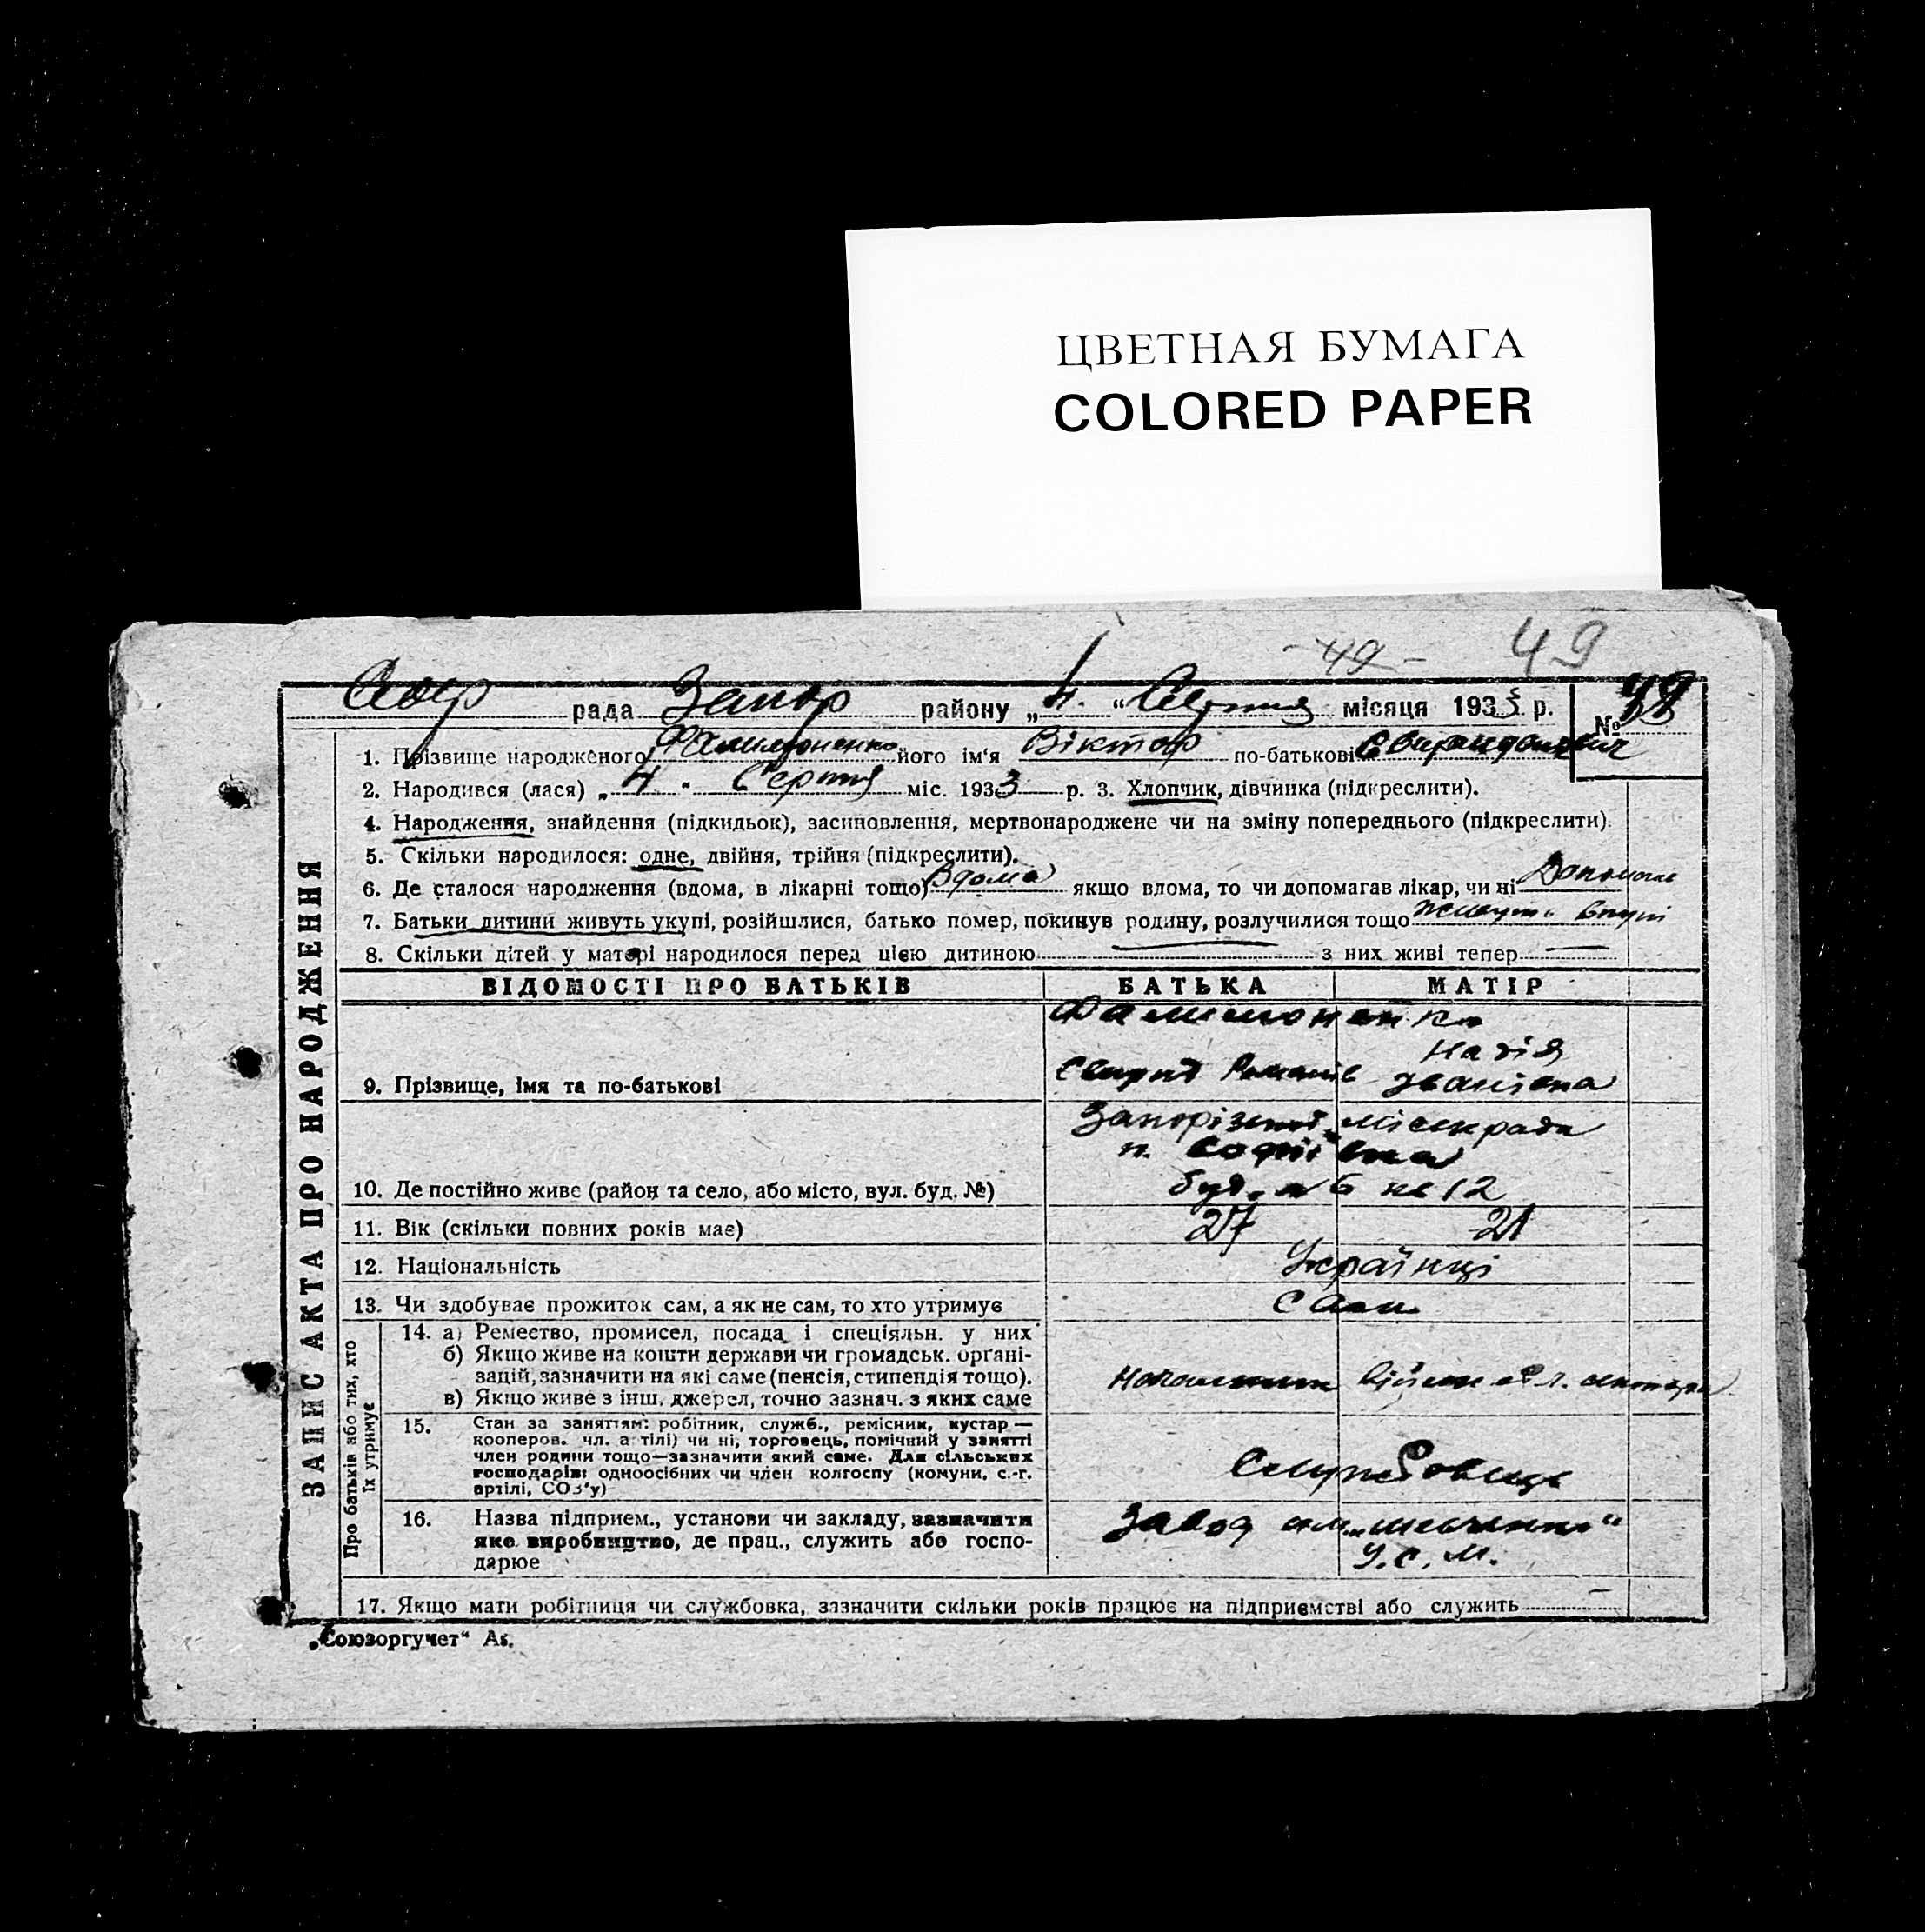 ЦВЕТНАЯ БУМАГА
COLORED PAPER
- 49 - 49
рада Запор району „4.“ Серпня місяця 1933 р. №
1. Прізвище народженого його ім‘я Віктор по-батькові
2. Народився (лася) „4“ Серпня міс. 1933 р. 3. Хлопчик, дівчинка (підкреслити).
4. Народження, знайдення (підкидьок), засиновлення, мертвонароджене чи на зміну попереднього (підкреслити).
5. Скільки народилося: одне, двійня, трійня (підкреслити).
6. Де сталося народження (вдома, в лікарні тощо) Вдома якщо вдома, то чи допомагав лікар, чи ні
7. Батьки дитини живуть укупі, розійшлися, батько помер, покинув родину, розлучилися тощо живуть вкупі
8. Скільки дітей у матері народилося перед цією дитиною — з них живі тепер —
ЗАПИС АКТА ПРО НАРОДЖЕННЯ
ВІДОМОСТІ ПРО БАТЬКІВ БАТЬКА МАТІР
Надія
9. Прізвище, імя та по-батькові Свирид Романів Іванівна
Запорізької міськрада
п. Софіівка
10. Де постійно живе (район та село, або місто, вул. буд. №) буд. № 6 кв 12
11. Вік (скільки повних років має) 27 21
12. Національність Українці
13. Чи здобуває прожиток сам, а як не сам, то хто утримує сам
Про батьків або тих, хто їх утримує
14. а) Ремество, промисел, посада і спеціяльн. у них
б) Якщо живе на кошти держави чи громадськ. органі-
зацій, зазначити на які саме (пенсія, стипендія тощо).
в) Якщо живе з інш. джерел, точно зазнач. з яких саме
15. Стан за заняттям: робітник, служб., ремісник, кустар —
кооперов. чл. артілі) чи ні, торговець, помічний у занятті
член родини тощо—зазначити який саме. Для сільських
господарів: одноосібних чи член колгоспу (комуни, с.-г.
артілі, СОЗ‘у)
Службовець
16. Назва підприєм., установи чи закладу, зазначити
яке виробництво, де прац., служить або госпо-
дарює
Завод
У.С.М.
17. Якщо мати робітниця чи службовка, зазначити скільки років працює на підприємстві або служить —
„Союзоргучет“